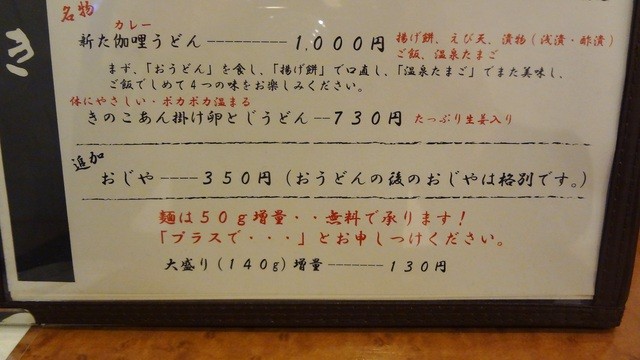 き
名物
カレー
新た伽哩うどん----------1,000円
揚げ餅、えび天、漬物(浅漬・酢漬)
ご飯、温泉たまご
まず、「おうどん」を食し、「揚げ餅」で口直し、「温泉たまご」でまた美味し、
ご飯でしめて4つの味をお楽しみください。
体にやさしい・ポカポカ温まる
きのこあん掛け卵とじうどん--730円 たっぷり生姜入り
追加
おじや----350円(おうどんの後のおじやは格別です。)
麺は50g増量・・無料で承ります!
「プラスで・・・」とお申しつけください。
大盛り(140g)増量-------130円